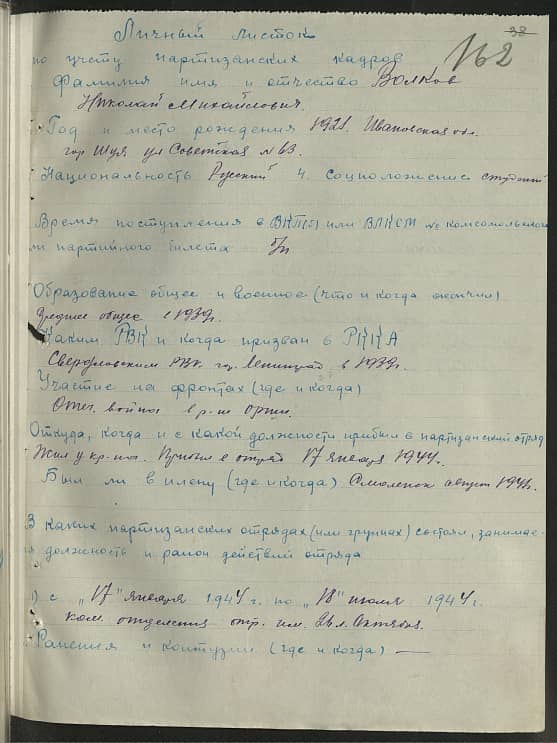 38
162
Личный листок
по учету партизанских кадров
Фамилия имя и отчество Волков
Николай Михайлович.
Год и место рождения 1921. Ивановская обл.
гор Шуя ул Советская № 63.
Национальность Русский 4. Соцположение студент
Время поступления в ВКП(б) или ВЛКСМ № комсомольского
ли партийного билета б/п
Образование общее и военное (что и когда окончил)
Среднее общее с 1939г.
Каким РВК и когда призван в РККА
Свердловским РВК. гор. Ленинград в 1939г.
Участие на фронтах (где и когда)
Отеч. война в р-не Орши.
Откуда, когда и с какой должности прибыл в партизанский отряд
Жил у кр-на. Прибыл в отряд 17 января 1944.
Был ли в плену (где и когда) Смоленск август 1941г.
В каких партизанских отрядах (или группах) состоял, занимае-
я должность и район действий отряда
1) с "17" января 1944 г. по "18" июля 1944 г.
ком. отделения отр. им. Октября.
Ранения и контузии (где и когда) —